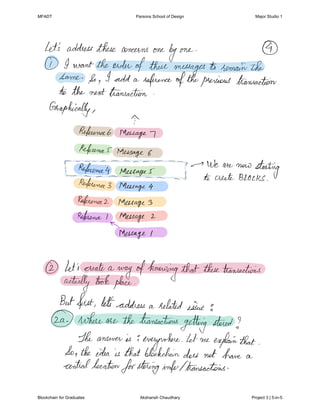 MFADT Parsons School of Design Major Studio 1
4
Let's address these concerns one by one.
1 I want the order of these messages to remain the
same. So, I add a reference of the previous transaction
to the next transaction.
Graphically,
Reference 6 Message 7
Reference 5 Message 6
Reference 4 Message 5 → We are now starting
Reference 3 Message 4 to create BLOCKS.
Reference 2 Message 3
Reference 1 Message 2
Message 1
2 Let's create a way of knowing that these transactions
actually took place.
But first, lets address a related issue :
2a. Where are the transactions getting stored?
The answer is : everywhere. Let me explain that.
So, the idea is that blockchain does not have a
central location for storing info/transactions.
Blockchain for Graduates Akshansh Chaudhary Project 3 | 5-in-5